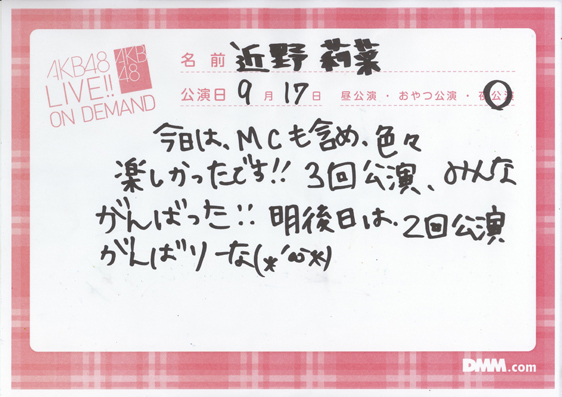 AKB48
LIVE!!
ON DEMAND
AKB
48
名前 近野莉菜
公演日 9月17日 昼公演・おやつ公演・夜公演
今日は、MCも含め、色々
楽しかったです!! 3回公演、みんな
がんばった!! 明後日は、2回公演
がんばりーな(*´ω`*)
DMM.com